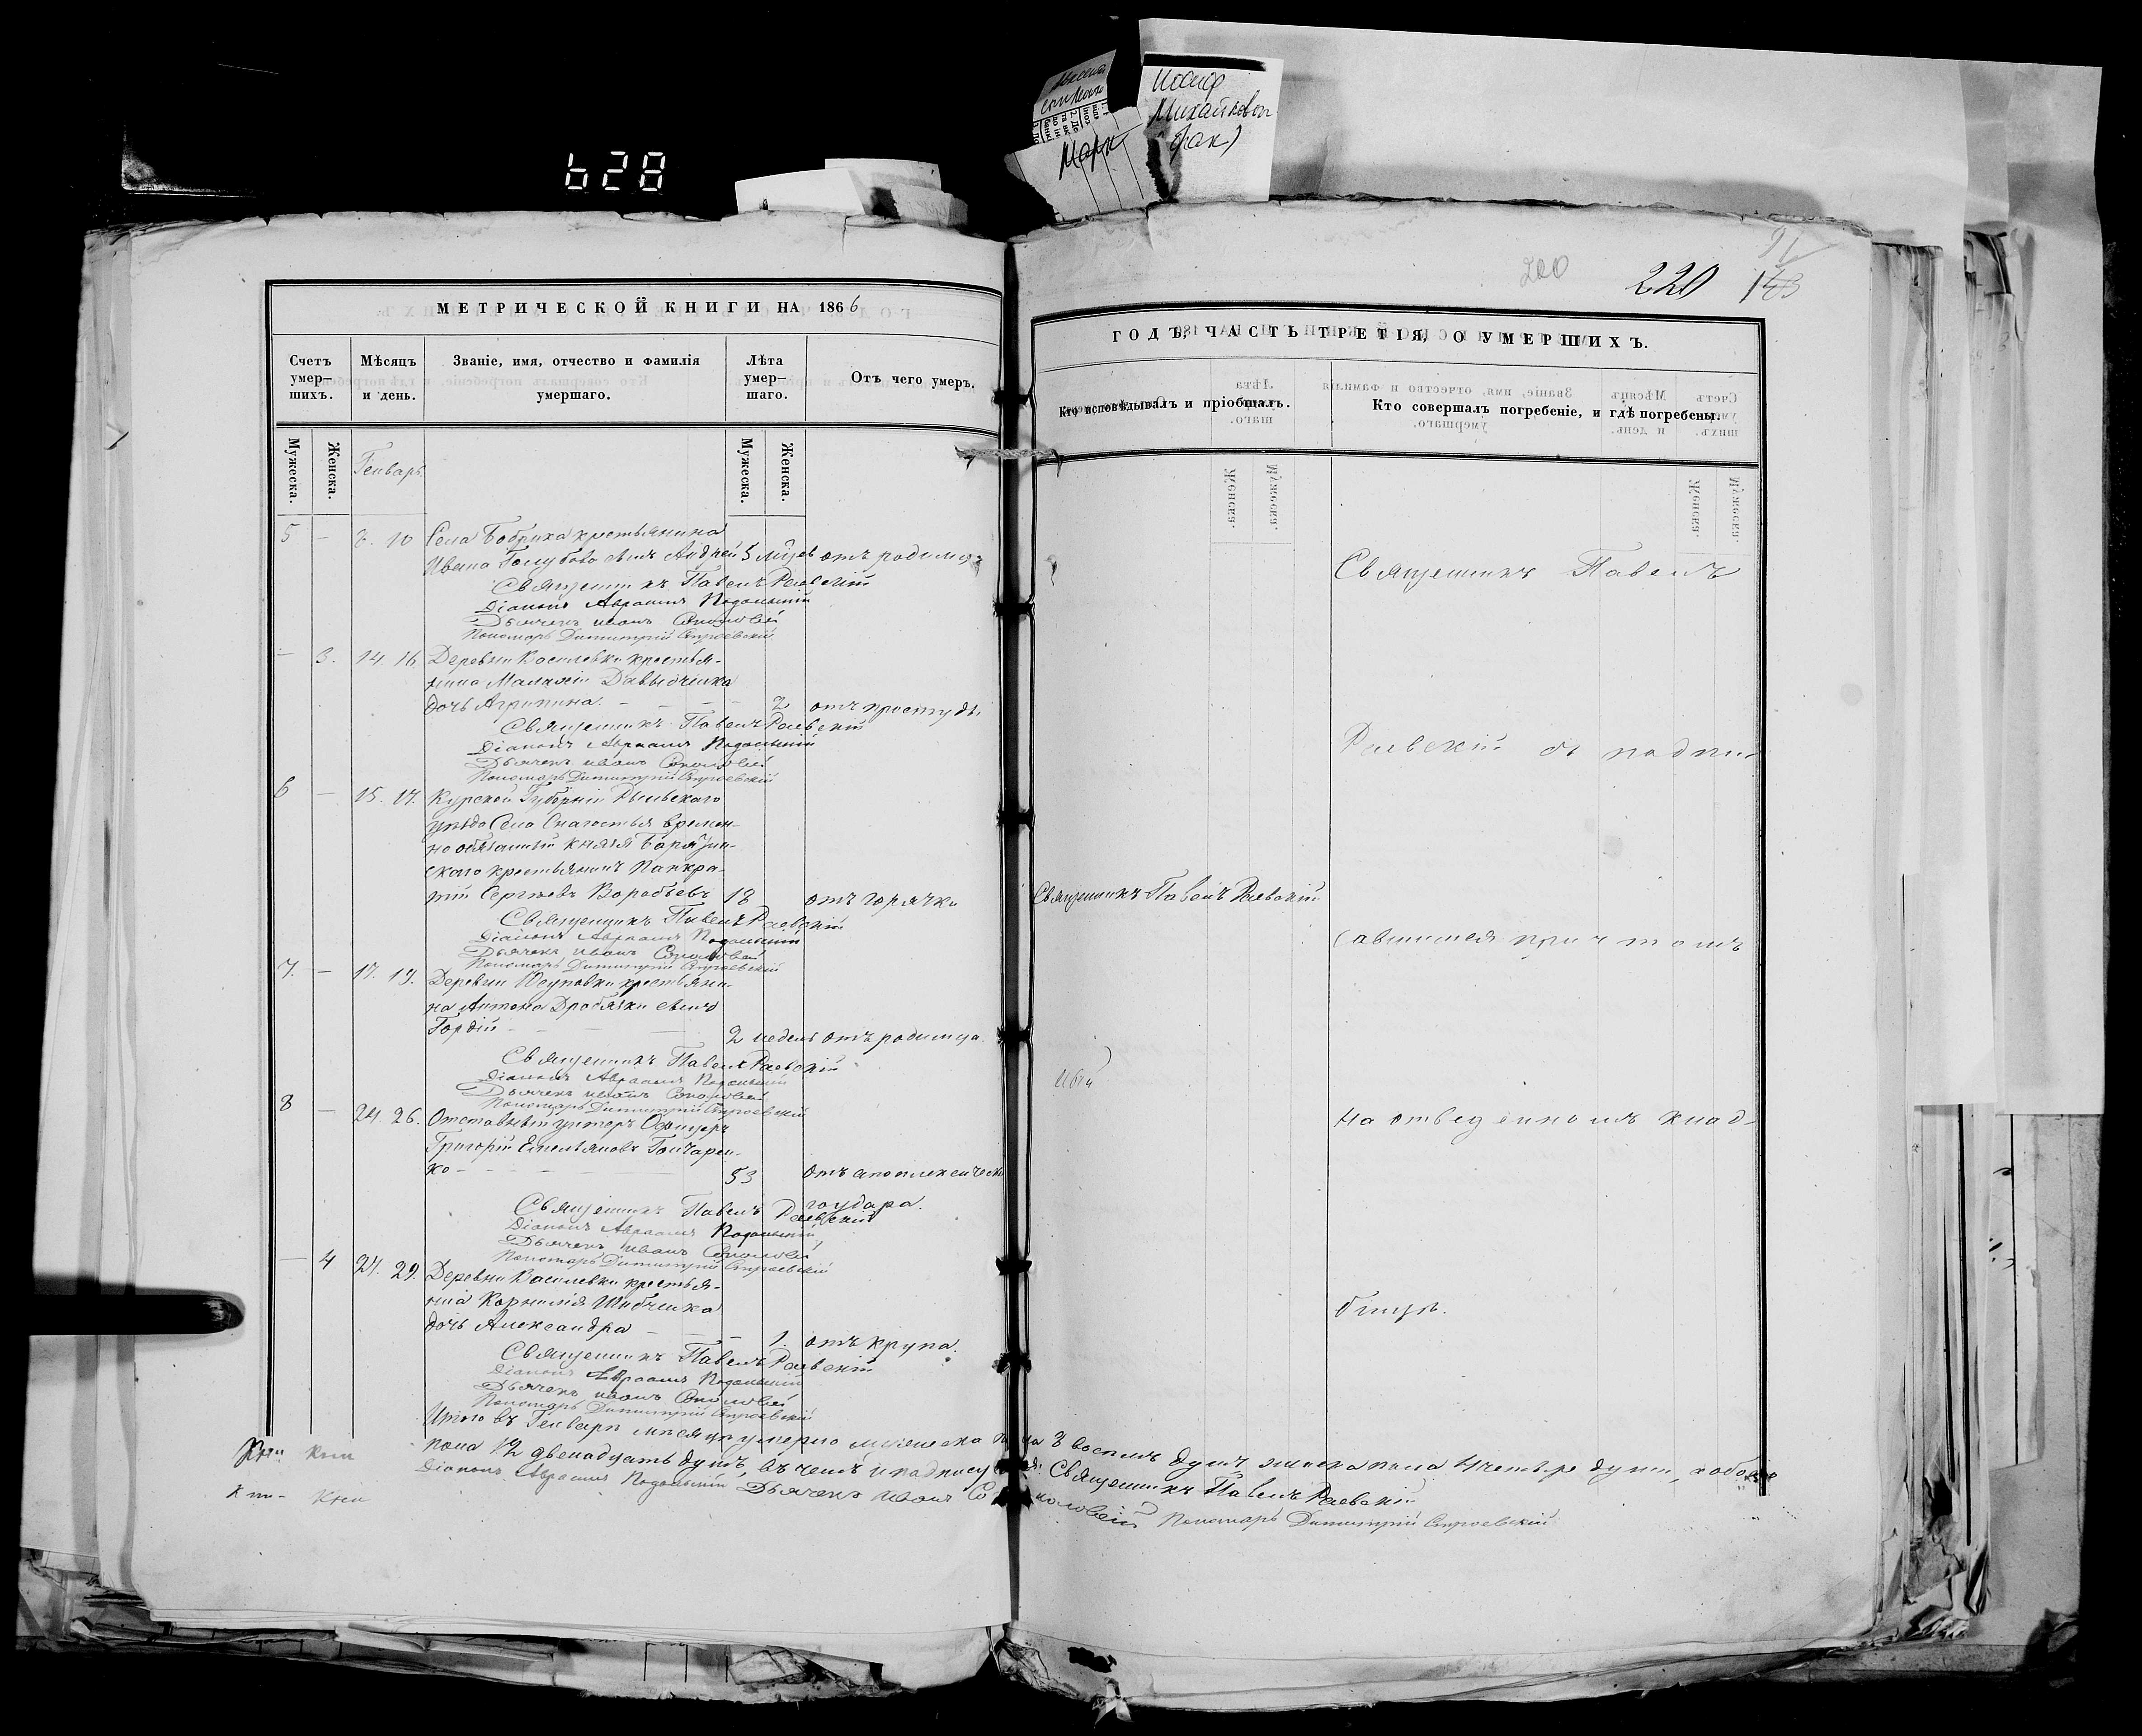 628
Іосиф
Михайлович
Марк
200
220
МЕТРИЧЕСКОЙ КНИГИ НА 1866
ГОДЪ, ЧАСТЬ ТРЕТІЯ, О УМЕРШИХЪ.
Счетъ умер-шихъ.
Мѣсяцъ и день.
Званіе, имя, отчество и фамилія умершаго.
Лѣта умер-шаго.
Отъ чего умеръ.
Кто исповѣдывалъ и пріобщалъ.
Кто совершалъ погребеніе, и гдѣ погребены.
Мужеска.
Женска.
Генварь
Мужеска.
Женска.
5 - 8. 10 Села Бобрика крестьянина
Ивана Голубова сынъ Андрей 5 мѣсяц. отъ родимца
Священникъ Павелъ Раевскій
Діаконъ Авраамъ Подольскій
Дьячекъ Иванъ Соколовскій
Пономарь Димитрій Строевскій
- 3. 14. 16. Деревни Василевки крестья-
нина Малахія Давыденка
дочь Агрипина. 2 отъ простуды
Священникъ Павелъ Раевскій
Діаконъ Авраамъ Подольскій
Дьячекъ Иванъ Соколовскій
Пономарь Димитрій Строевскій
6 - 15. 17. Курской Губерніи Рыльскаго
уѣзда Села Снагостья времен-
но обязанный князя Барятин-
скаго крестьянинъ Панкра-
тій Сергѣевъ Воробьевъ 18 отъ горячки
Священникъ Павелъ Раевскій
Священникъ Павелъ Раевскій
Діаконъ Авраамъ Подольскій
Дьячекъ Иванъ Соколовскій
Пономарь Димитрій Строевскій
7. - 17. 19. Деревни Юсуповки крестьяни-
на Антона Дробязки сынъ
Гордій 2 недель отъ родимца.
Священникъ Павелъ Раевскій
Діаконъ Авраамъ Подольскій
Дьячекъ Иванъ Соколовскій
Пономарь Димитрій Строевскій
8 - 24. 26. Отставный унтеръ Офицеръ
Григорій Емельяновъ Гончарен-
ко 53 отъ апоплексическа
го удара.
Священникъ Павелъ Раевскій
Діаконъ Авраамъ Подольскій
Дьячекъ Иванъ Соколовскій
Пономарь Димитрій Строевскій
- 4 27. 29. Деревни Василевки крестья-
нина Корнилія Шибченка
дочь Александра 1. отъ крупа.
Священникъ Павелъ Раевскій
Діаконъ Авраамъ Подольскій
Дьячекъ Иванъ Соколовскій
Пономарь Димитрій Строевскій
Священникъ Павелъ
Раевскій съ подпи-
савшимся причтомъ
на отведенномъ клад-
бищѣ.
Итого въ Генварѣ мѣсяцѣ умерло мужеска пола 8 восемь душъ женска пола 4 четыре души, обоего
пола 12 двенадцать душъ, въ чемъ и подписуемся: Священникъ Павелъ Раевскій
Діаконъ Авраамъ Подольскій Дьячекъ Иванъ Соколовскій Пономарь Димитрій Строевскій